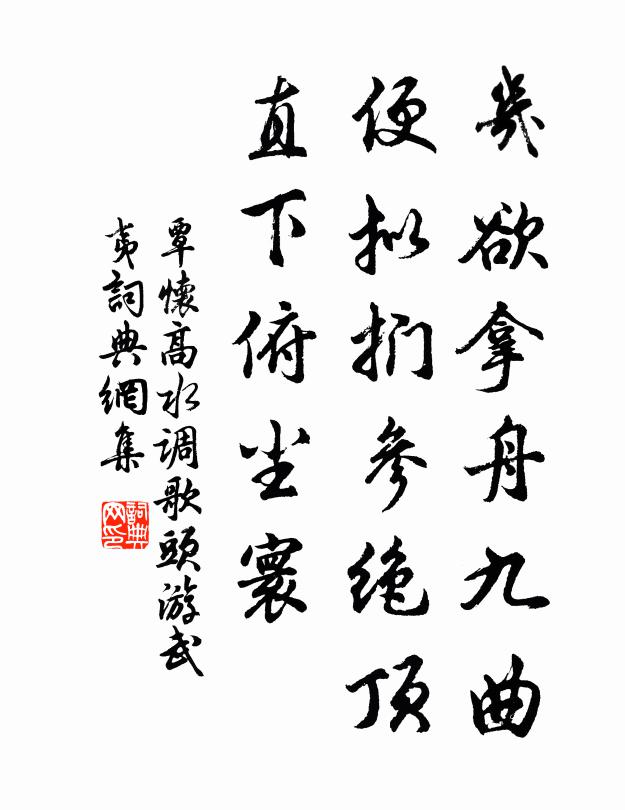 幾欲拿舟九曲
便拟扪參絶顶
直下俯尘寰
覃懷高水调歌頭游武
夷詞典網集
詞典
网印